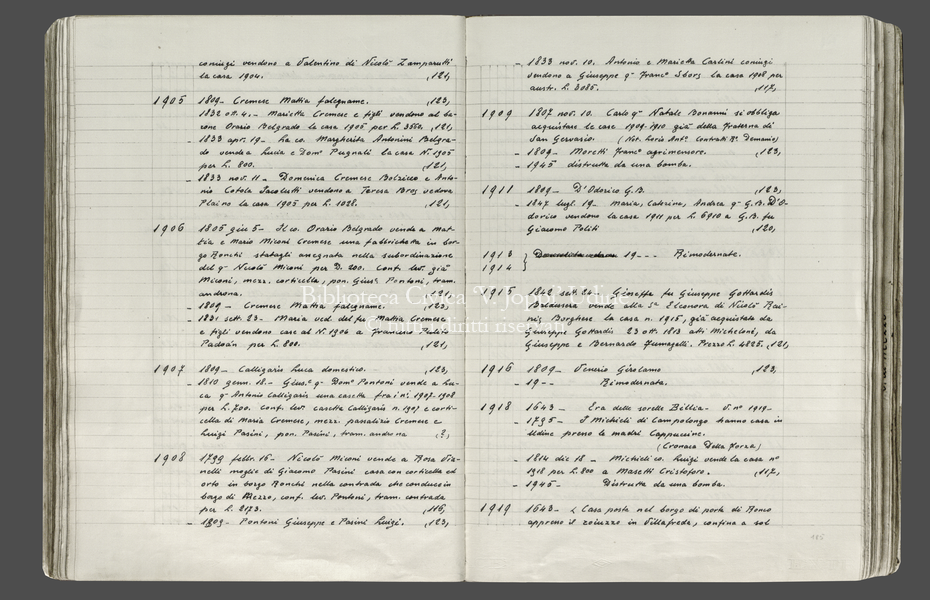 coniugi vendono a Valentino di Nicolò Zamparutti
la casa 1904. ,121,
1905 1809 - Cremese Mattia falegname. ,123,
1832 ott. 4. - Marietta Cremese e figli vendono al ba-
rone Orazio Belgrado la casa 1905 per L. 3550. ,121,
- 1833 apr. 19 - La co. Margherita Antonini Belgra-
do vende a Lucia e Domº Pugnali la casa N. 1905
per L. 800. ,121,
- 1833 nov. 11 - Domenica Cremese Bolzicco e Anto-
nio Cotola Iacolutti vendono a Teresa vedova
Plaino la casa 1905 per L. 1028. ,121,
1906 1805 giu 5 - Il co. Orazio Belgrado vende a Mat-
tia e Mario Miconi Cremese una fabbrichetta in bor-
go Ronchi statagli assegnata nella subordinazione
del qº Nicolò Miconi per D. 200. conf. lev. già
Miconi, mezz. corticella, pon. Giusº Pontoni, tram.
androna.
- 1809 - Cremese Mattia falegname. ,123,
- 1831 sett. 23 - Maria ved. del fu Mattia Cremese
e figli vendono case al N. 1906 a Francesco
Padoàn per L. 800. ,121,
1907 1809 - Calligaris Luca domestico. ,123,
- 1810 genn. 18. - Giusº qº Domº Pontoni vende a Lu-
ca qº Antonio Calligaris una casetta fra i nⁱ. 1907-1908
per L. 700. conf. lev. casetta Calligaris n. 1907 e corti-
cella di Maria Cremese, mezz. passalizio Cremese e
Luigi Pasini, pon. Pasini, tram. androna (?,
1908 1799 febb. 16 - Nicolò Miconi vende a Rosa Via-
nelli moglie di Giacomo Pasini casa con corticella ed
orto in borgo Ronchi nella contrada che conduce in
borgo di Mezzo, conf. lev. Pontoni, tram. contrada
per L. 2173. ,116,
- 1809 - Pontoni Giuseppe e Pasini Luigi. ,123,
- 1833 nov. 10. Antonio e Marietta Carlini coniugi
vendono a Giuseppe qº Francº la casa 1908 per
austr. L. 3085. ,117,
1909 1807 nov. 10. Carlo qº Natale Bonanni si obbliga
acquistare le case 1909-1910 già della Fraterna di
San Gervasio. (Not. Loris Antº Contratti Rº Demanio)
- 1809 - Moretti Francº agrimensore. ,123,
- 1945 distrutta da una bomba.
1911 1809 - D'Odorico G.B. ,123,
- 1847 lugl. 19 - Maria, Caterina, Andrea qº G.B. D'O-
dorico vendono la casa 1911 per L. 6910 a G.B. fu
Giacomo Politi ,120,
1913 } 19 - - - Rimodernate.
1914
1915 1842 sett. 20 - Giuseppe fu Giuseppe Gottardis
Baldasera vende alla Sª Eleonora di Nicolò Rai-
niz Borghese la casa n. 1915, già acquistata da
Giuseppe Gottardis 23 ott. 1813 atti Micheloni, da
Giuseppe e Bernardo Fumagalli. Prezzo L. 4825. ,121,
1916 1809 - Venerio Girolamo ,123,
- 19 - - Rimodernata.
1918 1643 - Era delle sorelle Billia - V. nº 1919 -
- 1795 - I Michieli di Campolongo hanno casa in
Udine presso le madri Cappuccine.
(Cronaca Della Forza)
- 1814 dic 18 - Michieli co. Luigi vende la casa nº
1918 per L. 800 a Masetti Cristoforo. ,117,
- 1945 - Distrutta da una bomba.
1919 1643 - Casa posta nel borgo di porta di Ronco
appresso il roiuzzo in Villafreda, confina a sol
185
Biblioteca Civica "V. Joppi" Udine
© tutti i diritti riservati